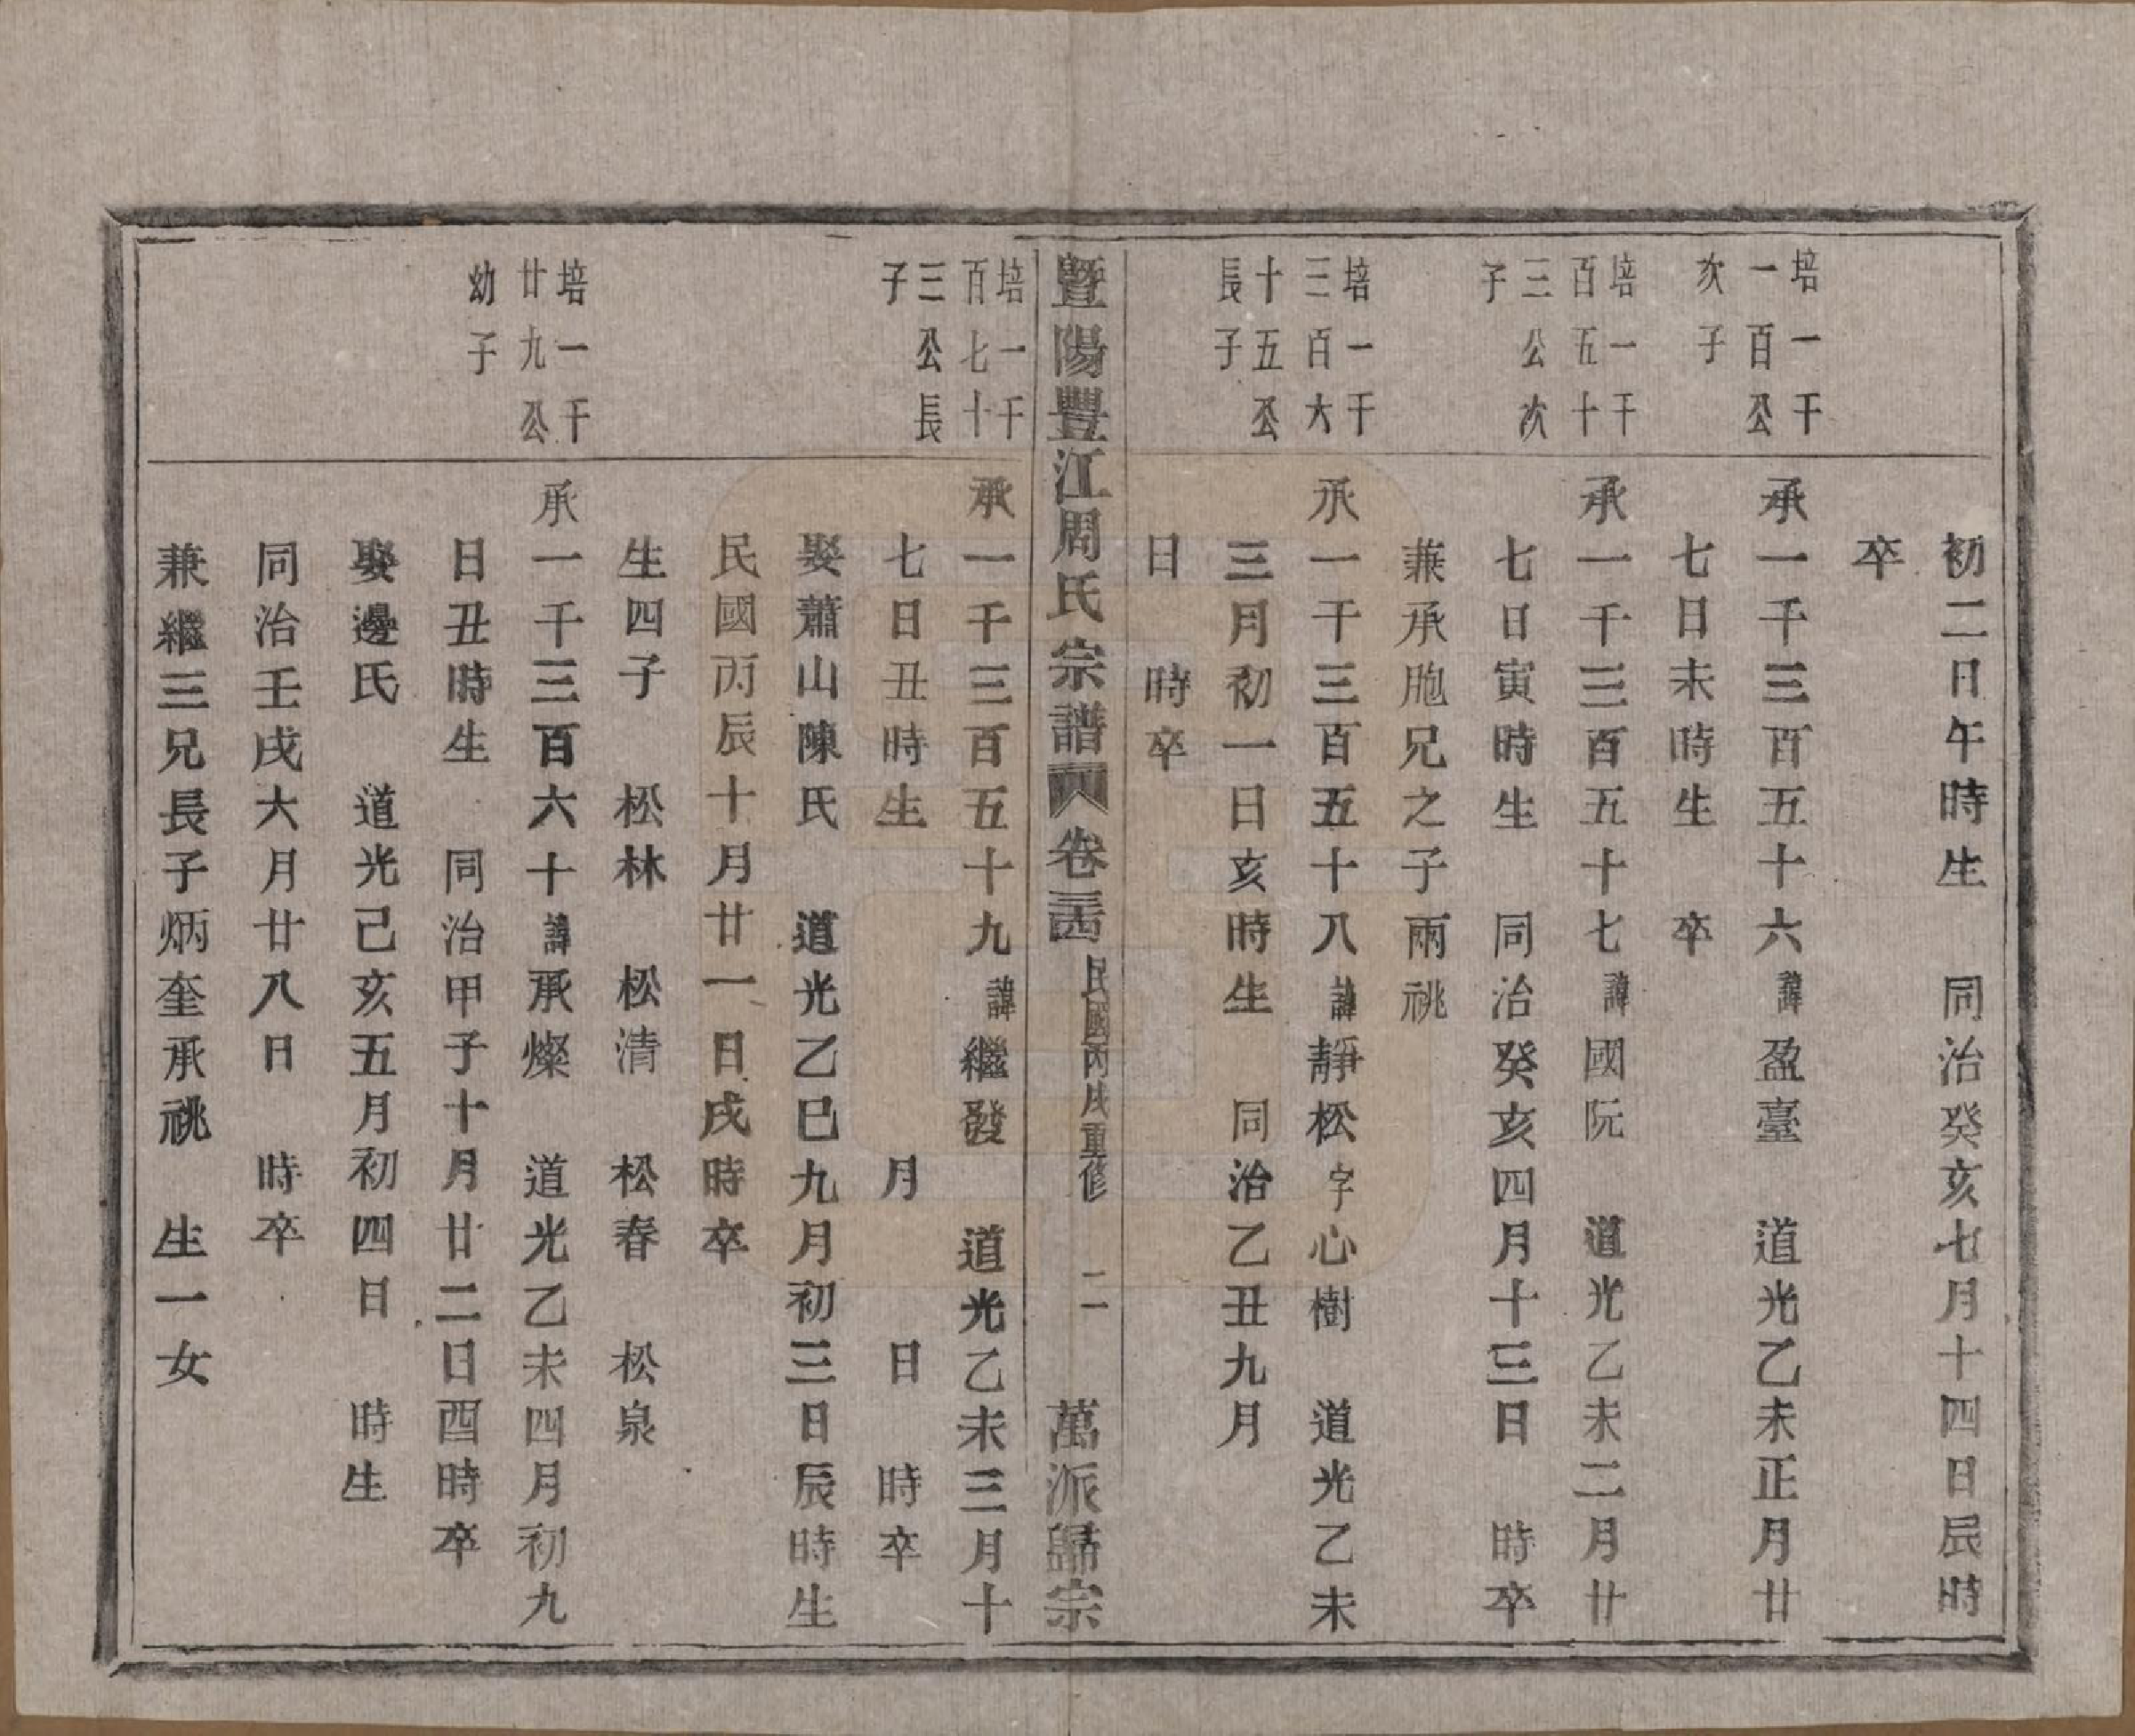 初二日午時生 同治癸亥七月十四日辰時
卒
培一千
一百公
次子
承一千三百五十六諱盈臺 道光乙未正月廿
七日未時生 卒
培一千
百五十
三公次
子
承一千三百五十七諱國阮 道光乙未二月廿
七日寅時生 同治癸亥四月十三日 時卒
兼承胞兄之子兩祧
培一千
三百六
十五公
長子
承一千三百五十八諱靜松字心樹 道光乙未
三月初一日亥時生 同治乙丑九月
日 時卒
暨陽豐江周氏宗譜 卷三四 民國丙戌重修 二一 萬派歸宗
培一千
百七十
三公長
子
承一千三百五十九諱繼發 道光乙未三月十
七日丑時生 月 日 時卒
娶蕭山陳氏 道光乙巳九月初三日辰時生
民國丙辰十月廿一日戌時卒
生四子 松林 松清 松春 松泉
培一千
廿九公
幼子
承一千三百六十諱承燦 道光乙未四月初九
日丑時生 同治甲子十月廿二日酉時卒
娶邊氏 道光己亥五月初四日 時生
同治壬戌六月廿八日 時卒
兼繼三兄長子炳奎承祧 生一女